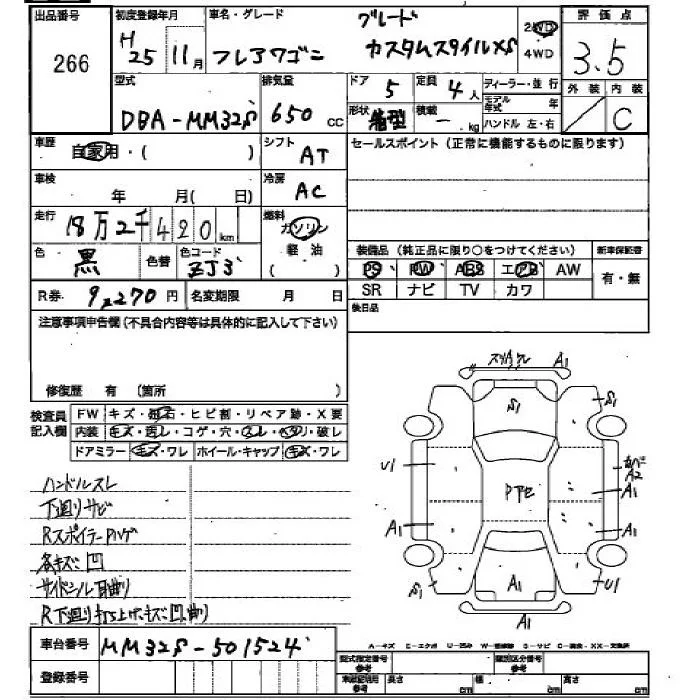 出品番号 初度登録年月 車名・グレード グレード 2WD 評価点
266 H25 11月 フレアワゴン カスタムスタイルXS 4WD 3.5
型式 排気量 ドア 5 定員 4人 ディーラー・並行 外装 内装
DBA-MM32S 650 cc 形状 箱型 積載 ー kg モデル年式 年 ハンドル 左・右 C
車歴 自家用・( ) シフト AT セールスポイント(正常に機能するものに限ります)
車検 年 月(日) 冷房 AC
走行 18万2千420km 燃料 ガソリン 軽油 ( )
色 黒 色替 色コード ZJ3 装備品(純正品に限り○をつけてください) 新車保証書
PS PW ABS エアB AW 有・無
R券 9,270円 名変期限 月 日 SR ナビ TV カワ
注意事項申告欄(不具合内容等は具体的に記入して下さい) 後日品
修復歴 有 (箇所 )
検査員記入欄 FW キズ・飛石・ヒビ割・リペア跡・X要
内装 キズ・汚レ・コゲ・穴・スレ・ヘタリ・破レ
ドアミラー キズ・ワレ ホイール・キャップ キズ・ワレ
ハンドルスレ
下廻りサビ
Rスポイラーハゲ
各キズ凹
サイドシル曲り
R下廻り打ち上げキズ凹曲り
A1
S1 S1
U1 カバーA2
A1
A1 A1
S1 A1 U1
A1
A-キズ E-エクボ U-凹み W-補修跡 S-サビ C-腐食 XX-交換済
車台番号 MM32S-501524
登録番号 型式指定番号 参考 類別区分番号 参考
車庫証明用 参考 長さ cm 幅 cm 高さ cm